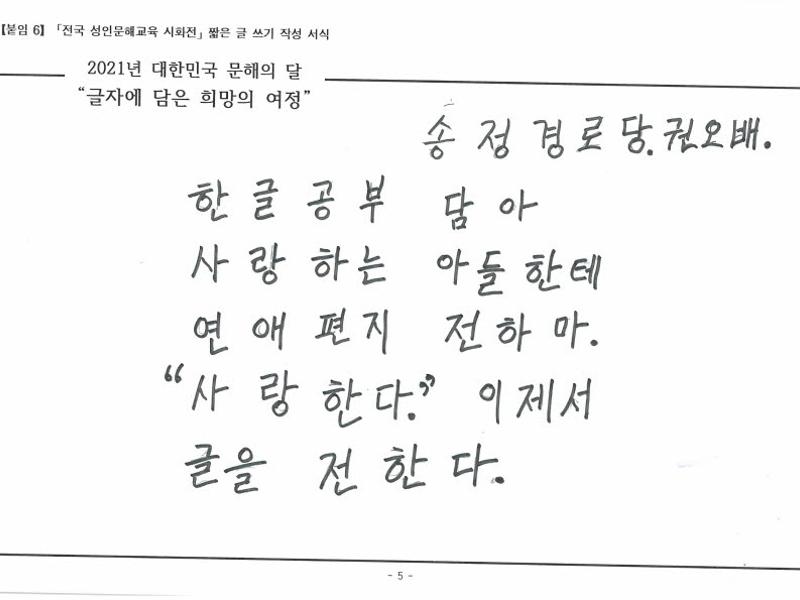 【붙임 6】 「전국 성인문해교육 시화전」 짧은 글 쓰기 작성 서식
2021년 대한민국 문해의 달
“글자에 담은 희망의 여정”
송정경로당. 권오배.
한글공부 담아
사랑하는 아들한테
연애편지 전하마.
“사랑한다.” 이제서
글을 전한다.
- 5 -